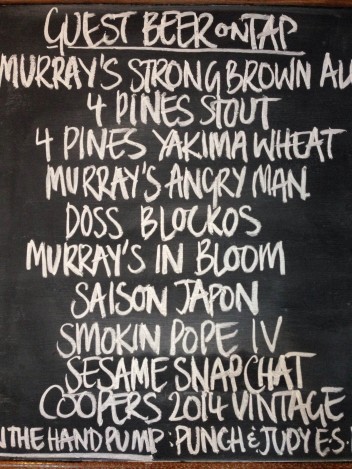 GUEST BEER ON TAP
MURRAY'S STRONG BROWN AL
4 PINES STOUT
4 PINES YAKIMA WHEAT
MURRAY'S ANGRY MAN
DOSS BLOCKOS
MURRAY'S IN BLOOM
SAISON JAPON
SMOKIN POPE IV
SESAME SNAP CHAT
COOPERS 2014 VINTAGE
N THE HAND PUMP: PUNCH & JUDY E.S.